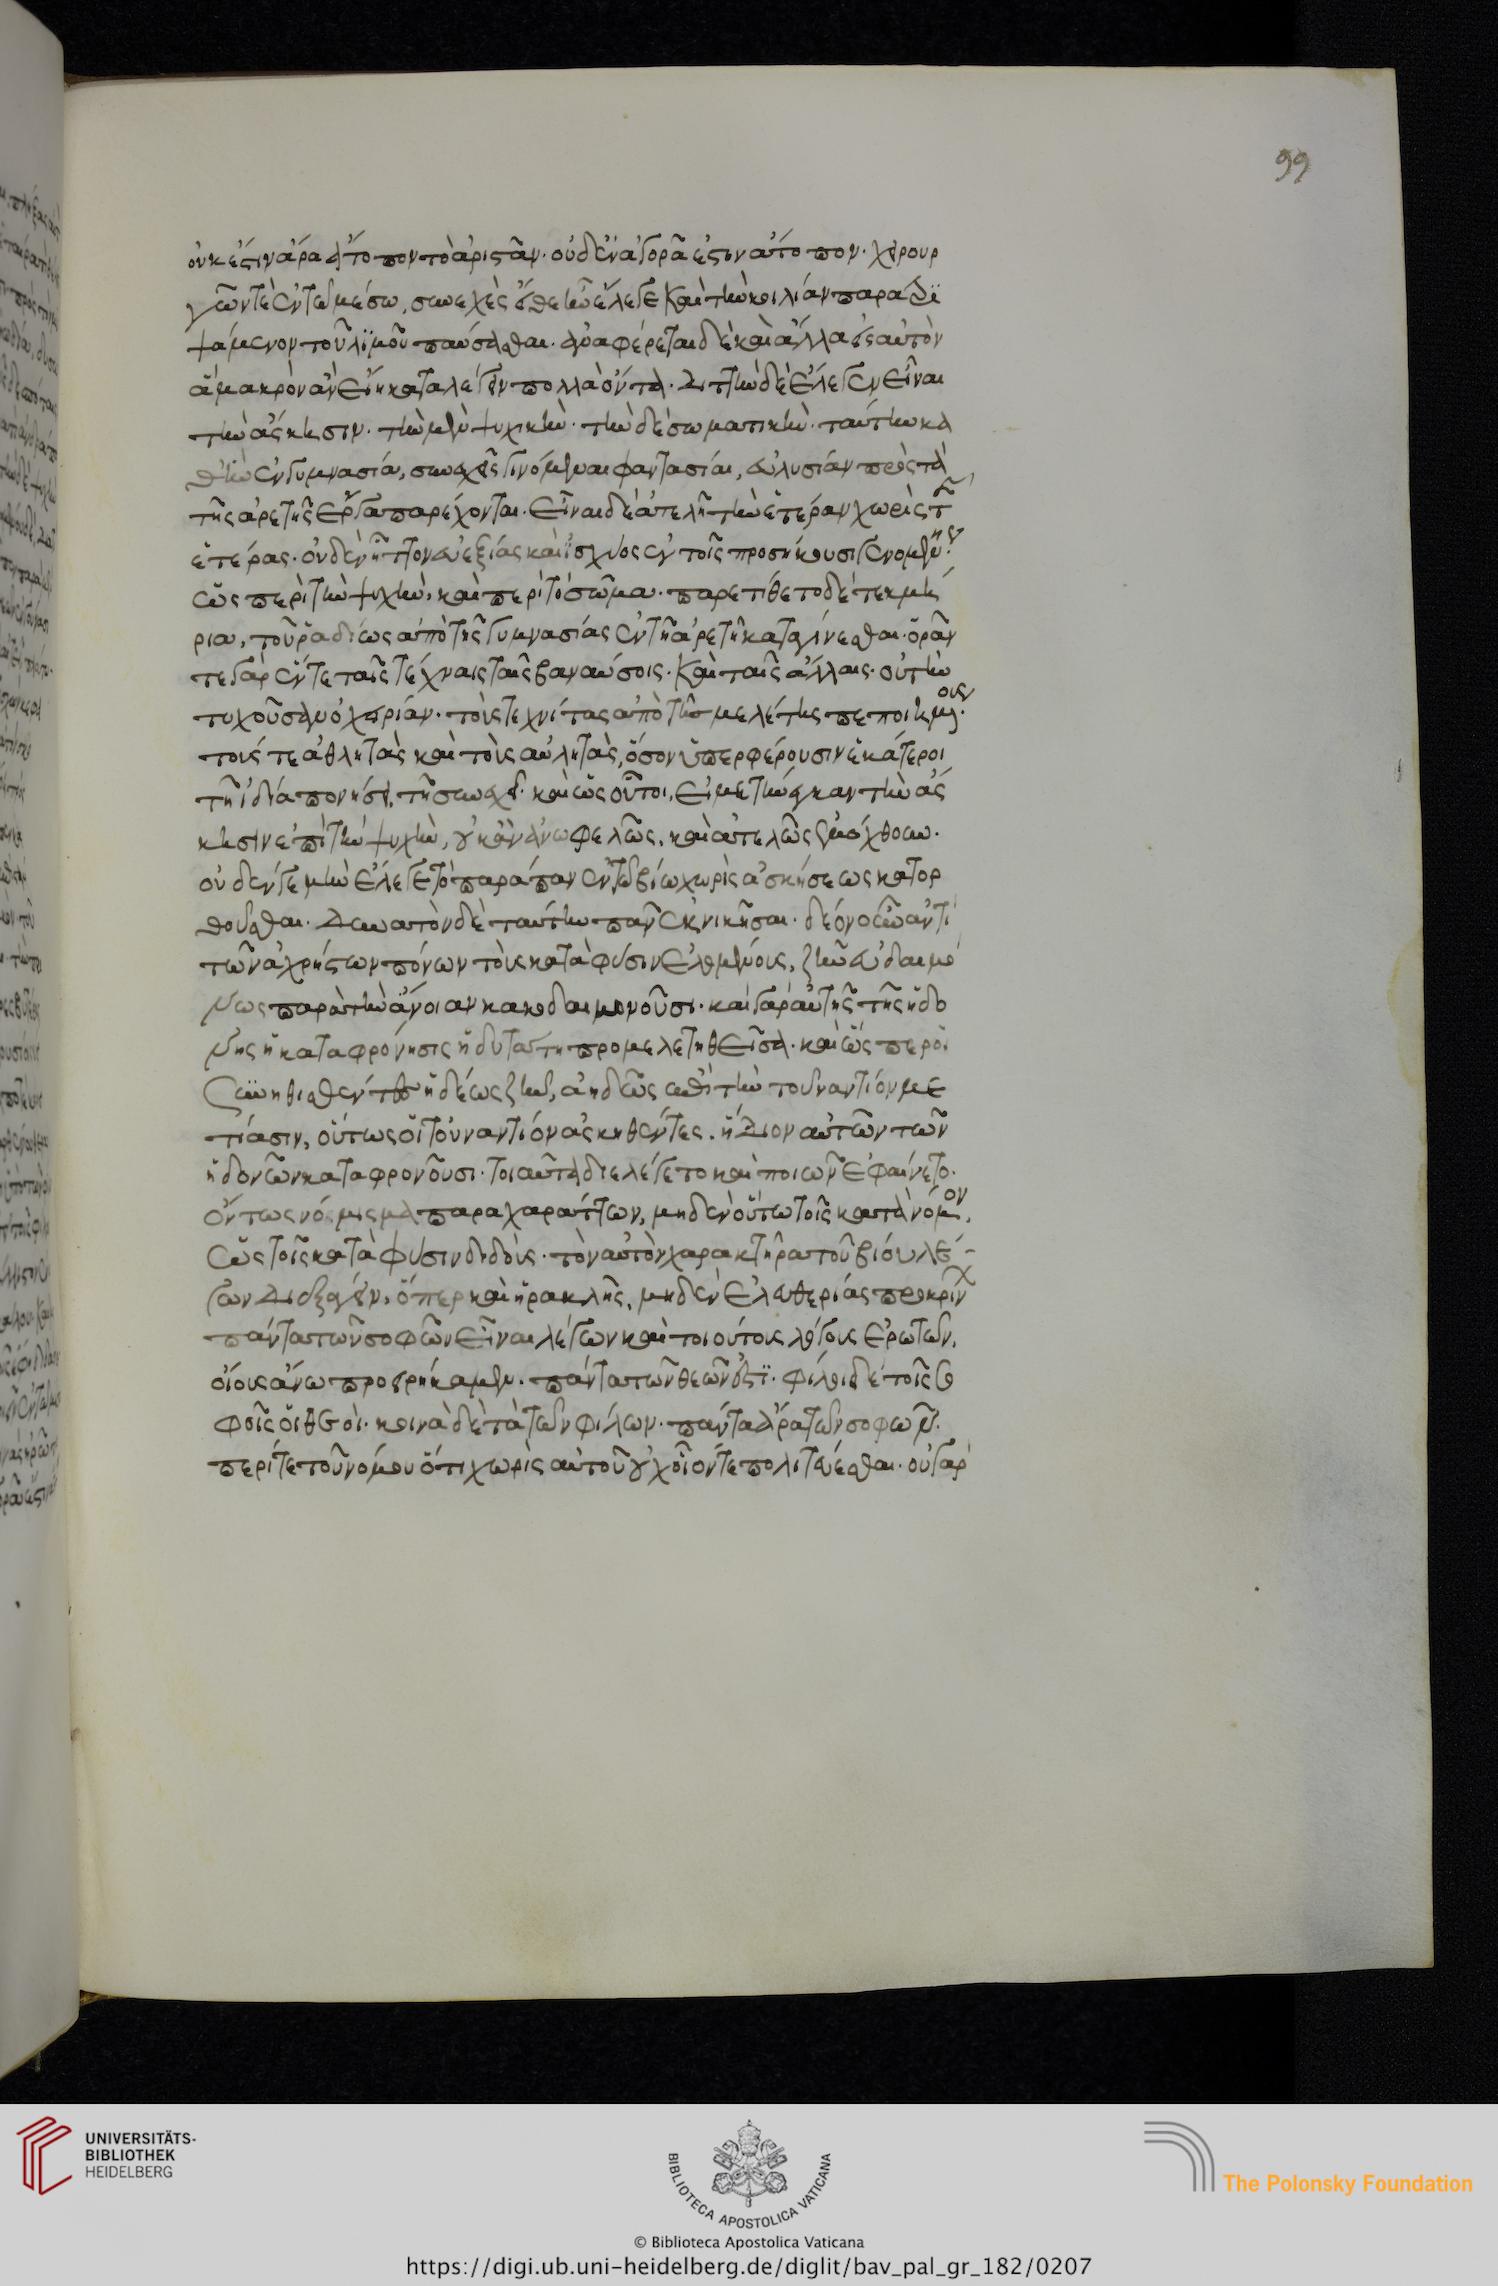 99
οὐκ ἔστιν ἄρα ἄτοπον τὸ ἀριστᾶν· οὐδ' ἐν ἀγορᾶ ἐστιν ἄτοπον· χειρουρ
γῶν τὲ ἐν τῶ μέσω, συνεχὲς εἴθε ἦν ἔλεγε καὶ τὴν κοιλίαν παραδϊ
ψάμενον τοῦ λϊμοῦ παύσασθαι· ἀναφέρεται δὲ καὶ ἄλλα εἰς αὐτὸν
ἃ μακρὸν ἂν εἴη καταλέγειν πολλὰ ὄντα· διττὴν δὲ ἔλεγεν εἶναι
τὴν ἄσκησιν· τὴν μὲν ψυχικὴν· τὴν δὲ σωματικὴν· ταύτην κα
θ' ἣν ἐν γυμνασία, συνεχεῖς γινόμεναι φαντασίαι, εὐλυσίαν πρὸς τὰ
τῆς ἀρετῆς ἔργα παρέχονται· εἶναι δὲ ἀτελῆ τὴν ἑτέραν χωρὶς τῆς
ἑτέρας· οὐδὲν ἧττον εὐεξίας καὶ ἰσχύος ἐν τοῖς προσήκουσι γενομένης·
ὡς περὶ τὴν ψυχὴν, καὶ περὶ τὸ σῶμα· παρετίθετο δὲ τεκμή
ρια, τοῦ ῥαδίως ἀπὸ τῆς γυμνασίας ἐν τῆ ἀρετῆ καταγίνεσθαι· ὁρᾶν
τε γὰρ ἔν τε ταῖς τέχναις ταῖς βαναύσοις· καὶ ταῖς ἄλλαις· οὐ τὴν
τυχοῦσαν ὀχειρίαν· τοὺς τεχνίτας ἀπὸ τῆς μελέτης πεποιημένους·
τούς τε ἀθλητὰς καὶ τοὺς αὐλητὰς, ὅσον ὑπερφέρουσιν ἑκάτεροι
τῆ ἰδία πονήσει, τῆ συνεχεῖ· καὶ ὡς οὗτοι, εἰ μετήνεγκαν τὴν ἄσ
κησιν ἐπὶ τὴν ψυχὴν, οὐκ ἂν ἀνωφελῶς, καὶ ἀτελῶς ἐμόχθουν·
οὐδέν γε μὴν ἔλεγε τὸ παράπαν ἐν τῶ βίω χωρὶς ἀσκήσεως κατορ
θοῦσθαι· δυνατὸν δὲ ταύτην πᾶν ἐκνικῆσαι· δέον οὖν ἀντὶ
τῶν ἀχρήστων πόνων τοὺς κατὰ φύσιν ἑλομένους, ζῆν εὐδαιμό
νως παρὰ τὴν ἄνοιαν κακοδαιμονοῦσι· καὶ γὰρ αὐτῆς τῆς ἡδο
νῆς ἡ καταφρόνησις ἡδυτάτη προμελετηθεῖσα· καὶ ὥσπερ οἱ
συνηθισθέντες ἡδέως ζῆν, ἀηδῶς ἐπὶ τὴν τοὐναντίον με
τίασιν, οὕτως οἱ τοὐναντίον ἀσκηθέντες· ἥδιον αὐτῶν τῶν
ἡδονῶν καταφρονοῦσι· τοιαῦτα διελέγετο καὶ ποιῶν ἐφαίνετο·
ὄντως νόμισμα παραχαράττων, μηδὲν οὕτω τοῖς κατὰ νόμον,
ὡς τοῖς κατὰ φύσιν διδοὺς· τὸν αὐτὸν χαρακτῆρα τοῦ βίου λέ-
γων διεξάγειν, ὅπερ καὶ ἡρακλῆς, μηδὲν ἐλευθερίας προκρίνων
πάντα τῶν σοφῶν εἶναι λέγων καὶ τοιούτους λόγους ἐρωτῶν,
οἵους ἄνω προειρήκαμεν· πάντα τῶν θεῶν ἐστϊ· φίλοι δὲ τοῖς σο
φοῖς οἱ θεοὶ· κοινὰ δὲ τὰ τῶν φίλων· πάντα ἄρα τῶν σοφῶν·
περί τε τοῦ νόμου ὅτι χωρὶς αὐτοῦ οὐχ οἷόν τε πολιτεύεσθαι· οὐ γὰρ
UNIVERSITÄTS-
BIBLIOTHEK
HEIDELBERG
BIBLIOTECA APOSTOLICA VATICANA
© Biblioteca Apostolica Vaticana
The Polonsky Foundation
https://digi.ub.uni-heidelberg.de/diglit/bav_pal_gr_182/0207